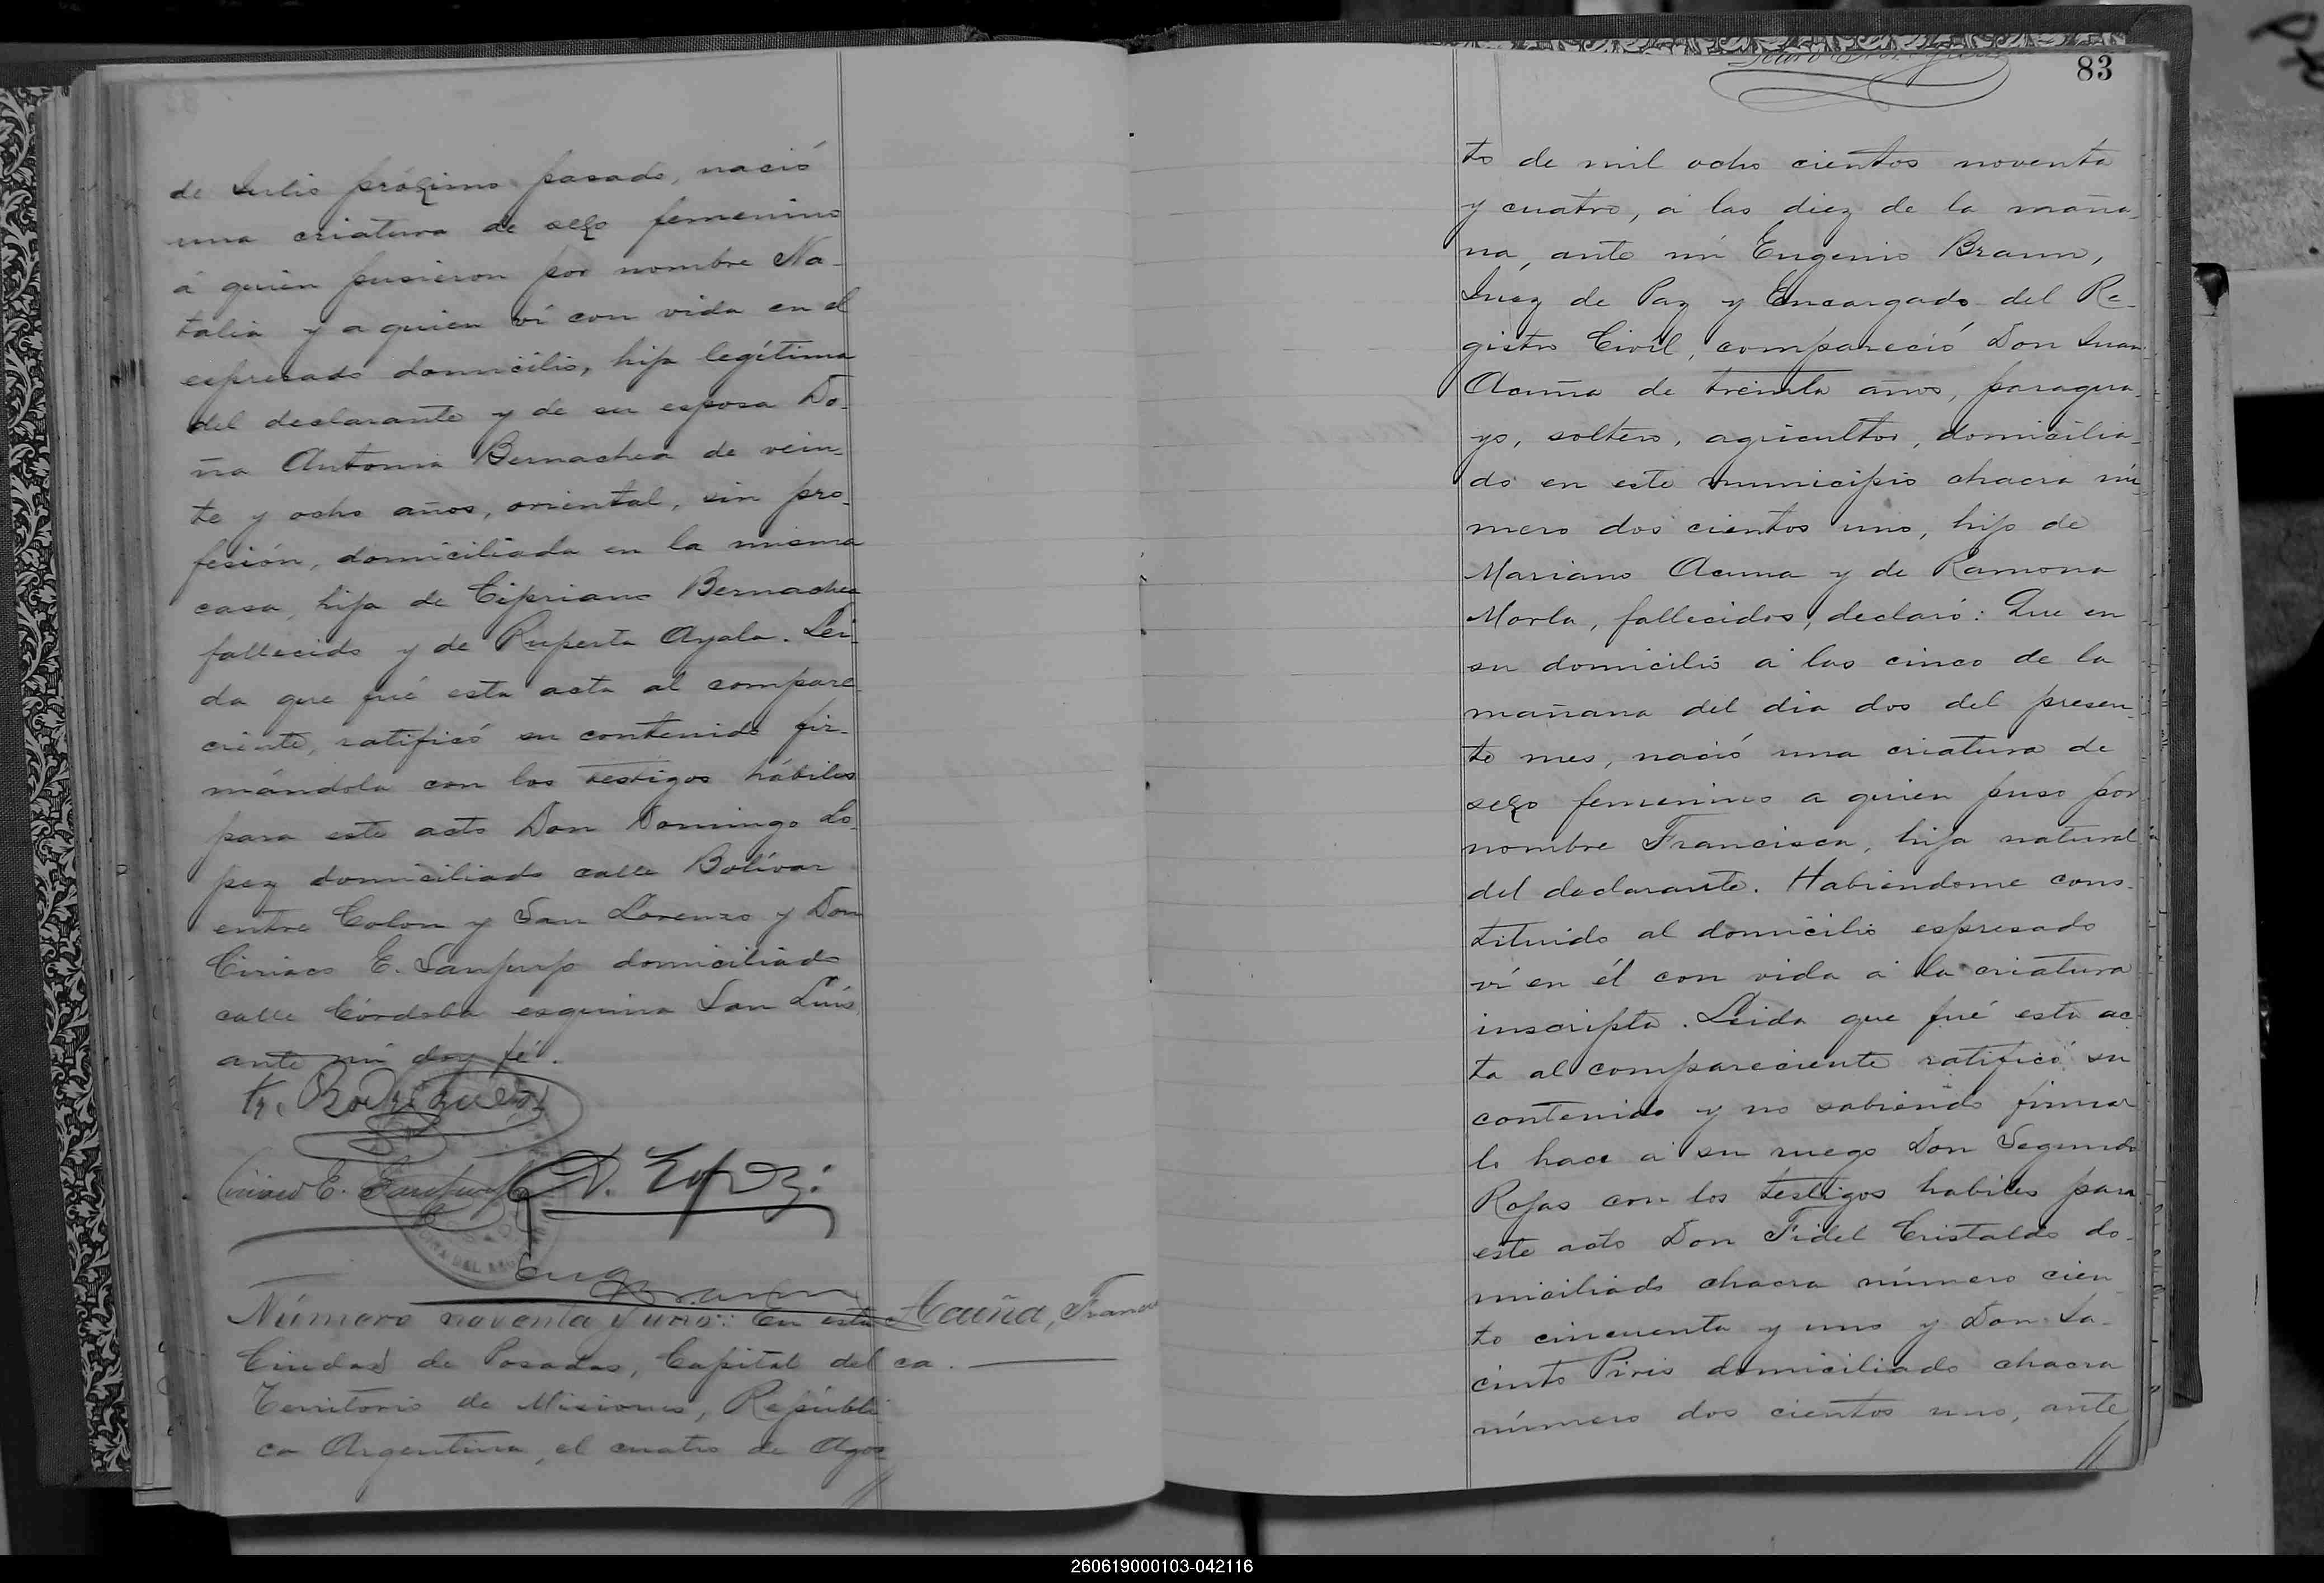 de Julio próximo pasado, nació
una criatura de sexo femenino
á quien pusieron por nombre Na-
talia y a quien ví con vida en el
espresado domicilio, hija legítima
del declarante y de su esposa Do-
ña Antonia Bernachea de vein-
te y ocho años, oriental, sin pro-
fesión, domiciliada en la misma
casa, hija de Cipriano Bernachea
fallecido y de Ruperta Ayala. Lei-
da que fué esta acta al compare-
ciente, ratificó su contenido fir-
mándola con los testigos hábiles
para este acto Don Domingo Lo-
pez domiciliado calle Bolívar
entre Colon y San Lorenzo y Don
Ciriaco E. Sanjurjo domiciliado
calle Córdoba esquina San Luis,
ante mí doy fé.
Rodriguez
Ciriaco E. Sanjurjo D. Lopez
Eug Braun
Número noventa y uno: En esta
Acuña, Francis
ca.
Ciudad de Posadas, Capital del
Territorio de Misiones, Repúbli
ca Argentina, el cuatro de Agos-
83
to de mil ocho cientos noventa
y cuatro, á las diez de la maña-
na, ante mí Eugenio Braun,
Juez de Paz y Encargado del Re-
gistro Civil, compareció Don Juan
Acuña de treinta años, paragua-
yo, soltero, agricultor, domicilia-
do en este municipio chacra nú-
mero dos cientos uno, hijo de
Mariano Acuna y de Ramona
Morla, fallecidos, declaró: Que en
su domicilio á las cinco de la
mañana del dia dos del presen-
te mes, nació una criatura de
sexo femenino a quien puso por
nombre Francisca, hija natural
del declarante. Habiendome cons-
tituido al domicilio espresado
ví en él con vida á la criatura
inscripta. Leida que fué esta ac-
ta al compareciente ratificó su
contenido y no sabiendo firmar
lo hace á su ruego Don Segundo
Rojas con los testigos habiles para
este acto Don Fidel Cristaldo do-
miciliado chacra número cien-
to cincuenta y uno y Don Ja-
cinto Piris domiciliado chacra
número dos cientos uno, ante
260619000103-042116